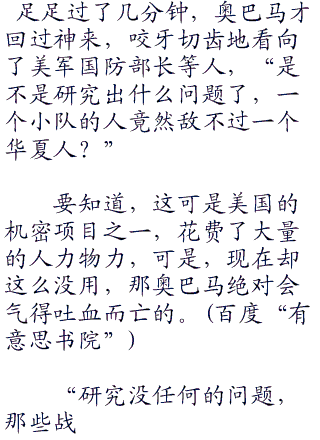 足足过了几分钟，奥巴马才
回过神来，咬牙切齿地看向
了美军国防部长等人，“是
不是研究出什么问题了，一
个小队的人竟然敌不过一个
华夏人？”
要知道，这可是美国的
机密项目之一，花费了大量
的人力物力，可是，现在却
这么没用，那奥巴马绝对会
气得吐血而亡的。(百度“有
意思书院”)
“研究没任何的问题，
那些战